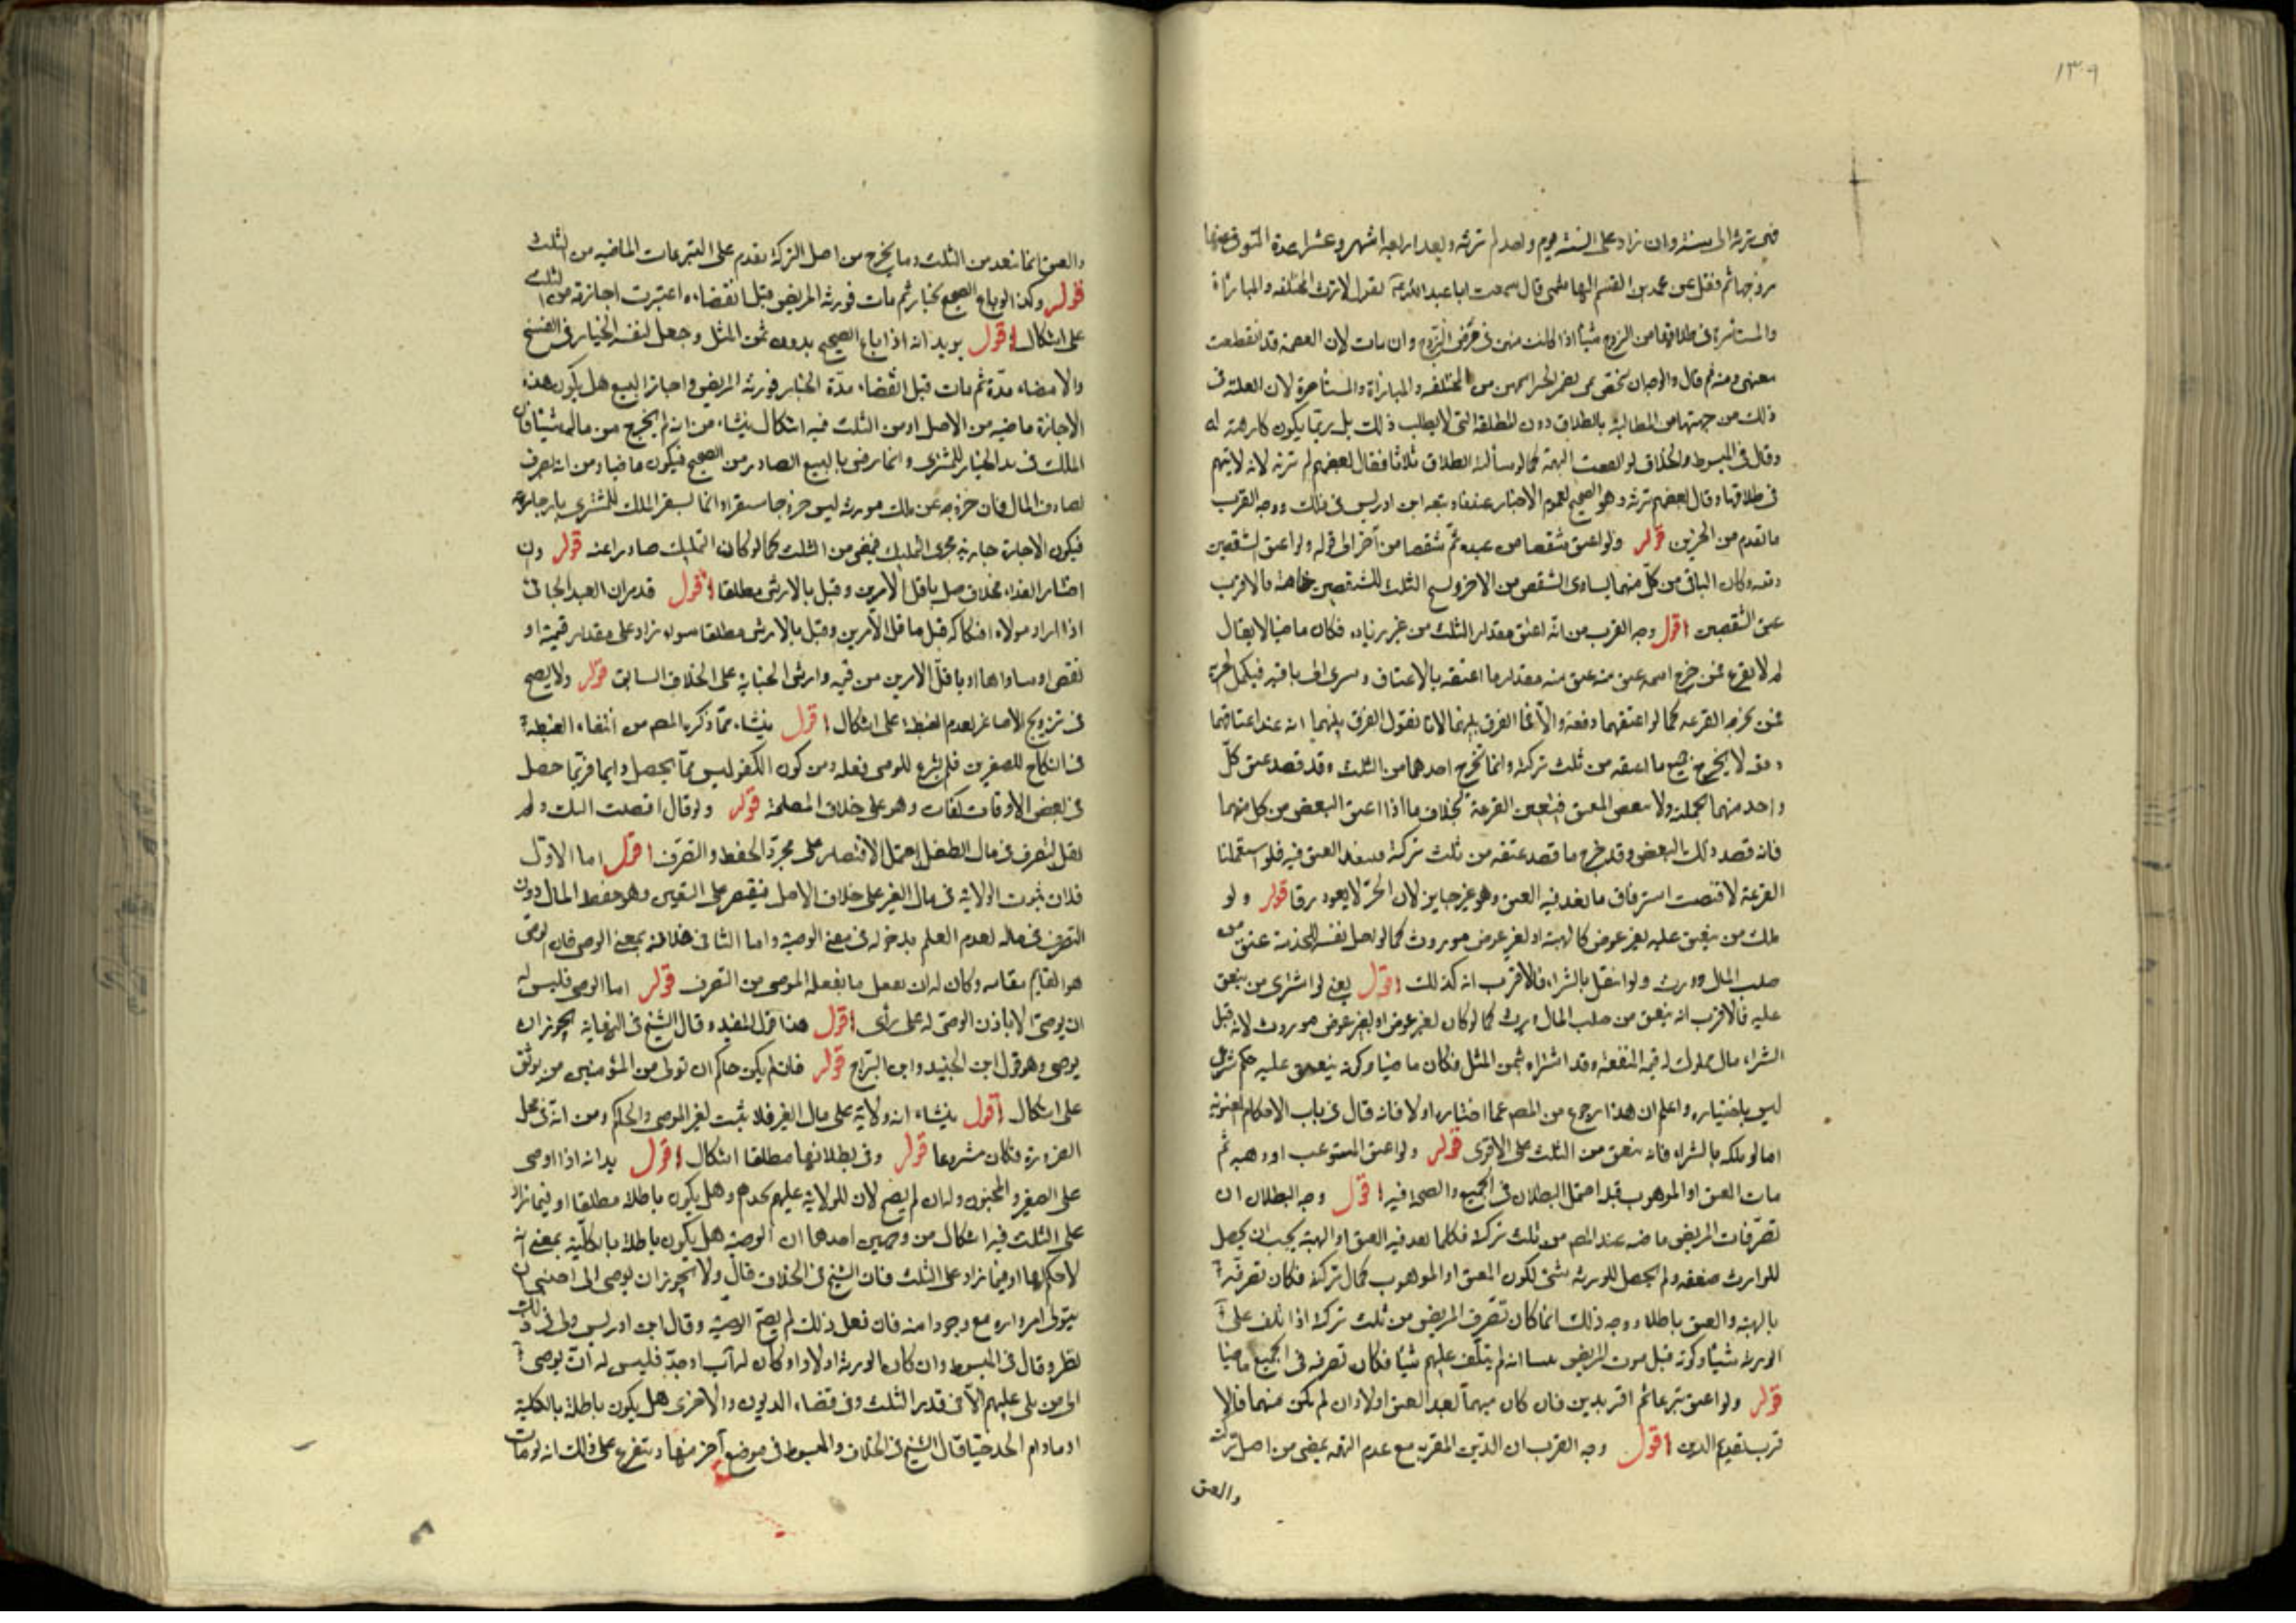 ١٣٠٩
فهي ترثه الى سنة وان زاد على السنة يوم واحد لم ترثه وبعد اربعة اشهر وعشرا عدة المتوفى عنها
زوجها ثم نقل عن محمد بن القسم الهاشمي قال سمعت ابا عبد الله يقول لا ترث المختلعة والمباراة
والمستامرة في طلاقها من الزوج شيئا اذا كانت منهن في مرض الزوج وان مات لان العصمة قد انقطعت
ذلك من جهتها من المطالبة بالطلاق دون المطلقة التي لا يطلب ذلك بل ربما يكون كارهة له
وقال في المبسوط والخلاف لو انتفت التهمة كما لو سألته الطلاق ثلاثا فقال بعضهم لم ترثه لانه لا يتهم
في طلاقها وقال بعضهم ترثه وهو الصحيح لعموم الاخبار عندنا وتبعه ابن ادريس في ذلك ووجه القرب
ما تقدم من الخبرين قوله ولو اعتق شقصا من عبده ثم شقصا من آخر الى قوله ولو اعتق الشقصين
دفعة وكان الباقي من كل منهما يساوي الشقص من الاخر ولم يسع الثلث للشقصين خاصة فالاقرب
عتق الشقصين اقول وجه القرب من انه اعتق مقدار الثلث من غير زيادة فكان ماضيا لا يقال
لم لا يقرع فمن خرج اسمه عتق منه مقدار ما اعتقه بالاعتاق وسرى الى باقيه فيكمل الحرية
فمن تخرجه القرعة كما لو اعتقهما دفعة والا فما الفرق بينهما لانا نقول الفرق بينهما انه عند اعتاقهما
دفعة لا يخرج جميع ما اعتقه من ثلث تركته وانما تخرج احدهما من الثلث وقد قصد عتق كل
واحد منهما بجملته ولا بعض المعتق فيتعين القرعة بخلاف ما اذا اعتق البعض من كل منهما
فانه قصد ذلك البعض وقد خرج ما قصد عتقه من ثلث تركته فينفذ العتق فيه فلو استعملنا
القرعة لاقتضت استرقاق ما نفذ فيه العتق وهو غير جايز لان الحر لا يعود رقا قوله ولو
ملك من ينعتق عليه بغير عوض كالهبة او بغير عوض موروث كما لو اجر نفسه للخدمة عتق من
صلب المال وورث ولو انتقل بالشراء فالاقرب انه كذلك اقول يعني لو اشترى من ينعتق
عليه فالاقرب انه ينعتق من صلب المال ويرث كما لو كان بغير عوض او بغير عوض موروث لانه قبل
الشراء مال مملوك له قيمة المنفعة وقد اشتراه بثمن المثل فكان ماضيا وكونه ينعتق عليه حكم شرعي
ليس باختياره واعلم ان هذا رجوع من المصنف عما اختاره اولا فانه قال في باب الاحكام المعنوية
اما لو ملكه بالشراء فانه ينعتق من الثلث على الاقوى قوله ولو اعتق المستوعب او وهبه ثم
مات العتق او الموهوب قبله احتمل البطلان في الجميع والصحة فيه اقول وجه البطلان ان
تصرفات المريض ماضية عند المصنف من ثلث تركته فكلما نفذ فيه العتق او الهبة يجب ان يحصل
للوارث ضعفه ولم يحصل للورثة شيء لكون المعتق او الموهوب كمال تركته فكان تصرفه
بالهبة والعتق باطلا ووجه ذلك انما كان تصرف المريض من ثلث تركته اذا تلف على
الورثة شيئا وكونه قبل موت المريض لم يتلف عليهم شيئا فكان تصرفه في الجميع ماضيا
قوله ولو اعتق تبرعا ثم اقر بدين فان كان متهما نفذ العتق اولا وان لم يكن متهما فالا
قرب تقديم الدين اقول وجه القرب ان الدين المقر به مع عدم التهمة يمضى من اصل التركة
والعتق
والعتق انما نعد من الثلث وما يخرج من اصل التركة يقدم على التبرعات الماضية من الثلث
قوله وكذا لو باع الصحيح بخيار ثم مات فورثه المريض قبل انقضاءه اعتبرت اجازته من الثلث
على اشكال اقول يريد انه اذا باع الصحيح بدون ثمن المثل وجعل لنفسه الخيار في الفسخ
والامضاء مدة ثم مات قبل انقضاء مدة الخيار فورثه المريض واجاز البيع هل يكون هذه
الاجازة ماضية من الاصل او من الثلث فيه اشكال ينشاء من انه لم يخرج من ماله شيئا فان
الملك في مدة الخيار للمشتري وانما رضى بالبيع الصادر من الصحيح فيكون ماضيا ومن انه تصرف
صادف المال فان خروجه عن ملك مورثه ليس خروجا مستقرا وانما يستقر الملك للمشتري باجازته
فيكون الاجازة جارية مجرى التمليك فيمضى من الثلث كما لو كان التمليك صادرا عنه قوله وان
اختار الفداء بخلاف قيل باقل الامرين وقيل بالارش مطلقا اقول قد مر ان العبد الجاني
اذا اراد مولاه افتكاكه قيل باقل الامرين وقيل بالارش مطلقا سواء زاد على مقدار قيمته او
نقص او ساواها او باقل الامرين من قيمته وارش الجناية على الخلاف السابق قوله ولا يصح
في تزويج الاصاغر لعدم الغبطة على اشكال اقول ينشاء مما ذكره المصنف من انتفاء الغبطة
في انكاح الصغيرين فلم يشرع للوصى فعله ومن كون الكفو ليس مما يحصل دايما فربما حصل
في بعض الاوقات وهو على خلاف المصلحة قوله ولو قال اوصيت اليك ولم
يقل لتصرف في مال الطفل احتمل الاقتصار على مجرد الحفظ والتصرف اقول اما الاول
فلان ثبوت الولاية في مال الغير على خلاف الاصل فيقتصر على المتيقن وهو حفظ المال دون
التصرف في ماله لعدم العلم بدخوله في معنى الوصية واما الثاني فلانه بمعنى الوصى فان الوصى
هو القايم مقامه وكان له ان يفعل ما يفعله الموصى من التصرف قوله اما الوصى فليس له
ان يوصى الا باذن الموصى له على رأي اقول هذا قول المفيد وقال الشيخ في النهاية يجوز ان
يوصى وهو قول ابن الجنيد وابن البراج قوله فان لم يكن حاكم ان تولى من المؤمنين من يوثق
على اشكال اقول ينشاء انه ولاية على مال الغير فلا يثبت لغير الموصى والحاكم ومن انه في محل
الضرورة فكان مشروعا قوله وفي بطلانها مطلقا اشكال اقول يريد انه اذا اوصى
على الصغير والمجنون ولدان لم يصح لان للولاية عليهم لجدهم وهل يكون باطلا مطلقا او فيما زاد
على الثلث فيه اشكال من وجهين احدهما ان الوصية هل يكون باطلة بالكلية بمعنى انه
لا حكم لها او فيما زاد على الثلث فان الشيخ في الخلاف قال ولا يجوز ان يوصى الى اجنبي ان
يتولى امر اولاده مع وجود ابيه فان فعل ذلك لم يصح الوصية وقال ابن ادريس ولى في ذلك
نظر وقال في المبسوط وان كان الورثة اولادا وكان له أب او جد فليس له ان يوصى
الى من يلى عليهم الا في قدر الثلث وفي قضاء الديون والاخرى هل يكون باطلة بالكلية
او ما دام الجد حيا قال الشيخ في الخلاف والمبسوط في موضع آخر منها ويتفرع على ذلك انه لو مات